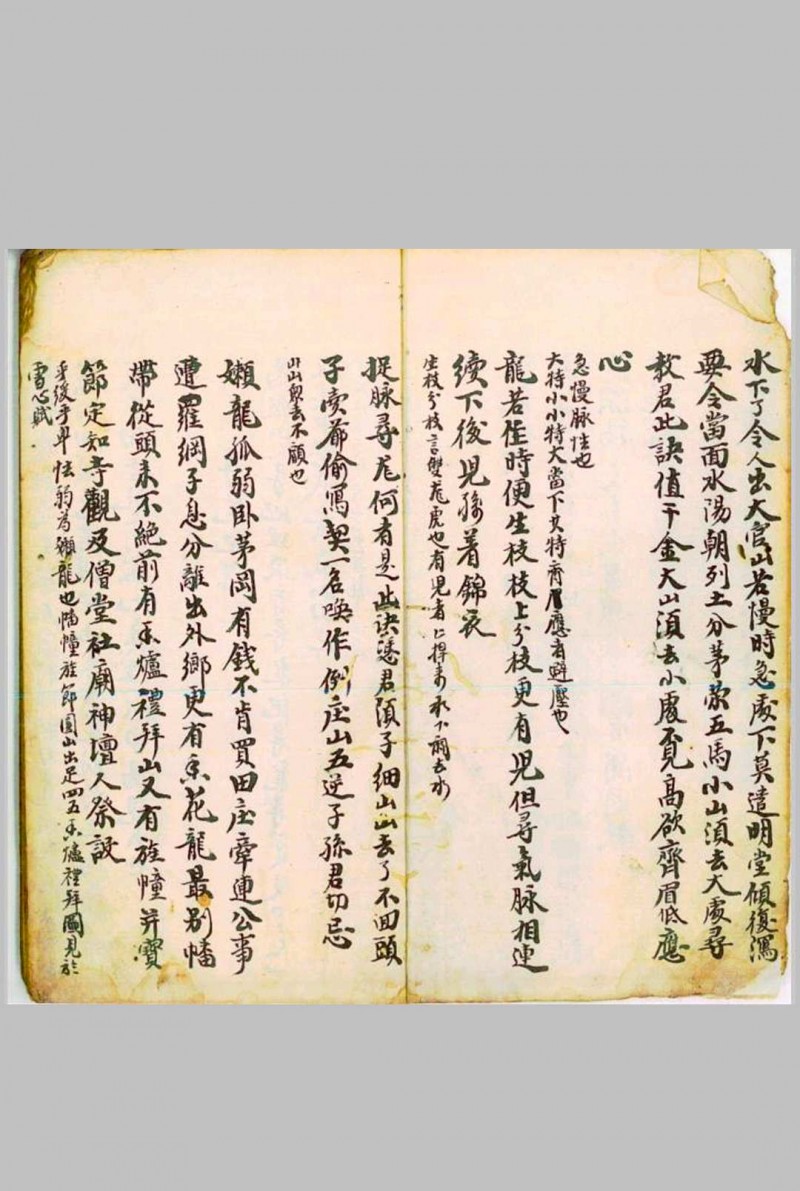 水下了令人出大官山若慢時急處下莫遣明堂傾復瀉
要令當面水湯朝列土分茅蒙五馬小山須去大處尋
教君此訣值千金大山須去小處覓高欲齊眉低應
心
急慢脉性也
大特小小特大當下其特齊眉應者避壓也
龍若住時便生枝枝上分枝更有児但尋氣脉相連
續下後児孫着錦衣
生枝分枝言雙龍虎也有児者
捉脉尋龍何有是此訣憑君須子細山山去了不回頭
子賣爺偷寫契一名喚作例庄山五逆子孫君切忌
山去不顧也
嬾龍孤弱卧茅岡有錢不肯買田庄牽連公事
遭羅綱子息分離出外鄉更有香花龍最别幡
帶從頭来不絕前有香爐禮拜山又有旌幢并寶
節定知寺觀及僧堂社廟神壇人祭設
手卑怯弱為嬾龍也幡幢旌節圓山出足四五香爐禮拜圖見於
雪心賦